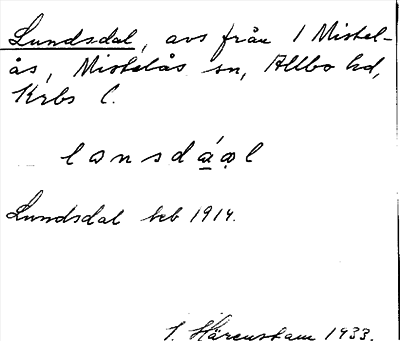 Lundsdal, avs från 1 Mistel-
ås, Mistelås sn, Allbo hd,
Krbs l.
lɔnsdá̲ǫl
Lundsdal beb 1914.
Härenstam 1933.